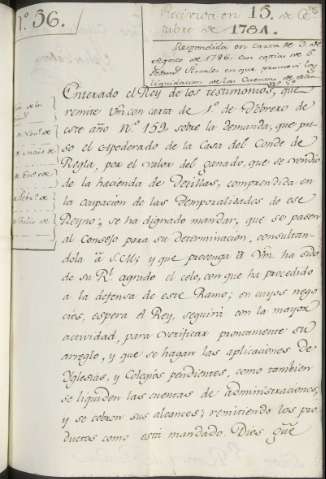 N.º 36.
Recivida en 15. de Oc.
tubre de 1784.
Respondida en carta de 3. de
Agosto de 1786. con copias de
liquidacion de las Cuentas
Enterado el Rey de los testimonios, que
remite Vm. con carta de 1.º de Febrero de
este año N.º 159 sobre la demanda, que pu-
so el apoderado de la Casa del Conde de
Regla, por el valor del ganado, que se vendio
de la hacienda de, comprendida en
la ocupacion de las Temporalidades de ese
Reyno; se ha dignado mandar, que se pasen
al Consejo para su determinacion, consultan-
dola á S.M.; y que prevenga á Vm. ha sido
de su R.l agrado el celo, con que ha procedido
á la defensa de este Ramo; en cuyos nego-
cios, espera el Rey, seguirá con la mayor
actividad, para verificar prontamente su
arreglo, y que se hagan las aplicaciones de
Yglesias, y Colegios pendientes, como tambien
se liquiden las cuentas de administraciones,
y se cobren sus alcances; remitiendo los pro-
ductos como está mandado. Dios gũe